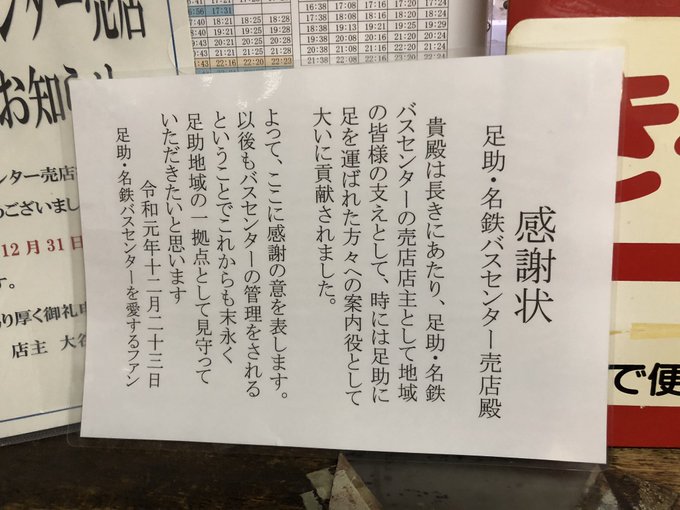 感謝状
足助・名鉄バスセンター売店殿
貴殿は長きにあたり、足助・名鉄
バスセンターの売店店主として地域
の皆様の支えとして、時には足助に
足を運ばれた方々への案内役として
大いに貢献されました。
よって、ここに感謝の意を表します。
以後もバスセンターの管理をされる
ということでこれからも末永く
足助地域の一拠点として見守って
いただきたいと思います
令和元年十二月二十三日
足助・名鉄バスセンターを愛するファン
ンター売店
お知らせ
ンター売店
うございまし
12月31日
す。
り厚く御礼申
店主 大谷
16:56 17:31
16:38 17:08 17:20
17:38 18:08 18:20
18:38 19:08 19:20
19:38 20:08 20:20
20:38 21:08 21:20
21:38 22:08 22:20
22:20 22:50 23:01
18:25 18:28
19:25 19:28
20:25 20:28
21:21 21:24
22:16 22:23
き
で便